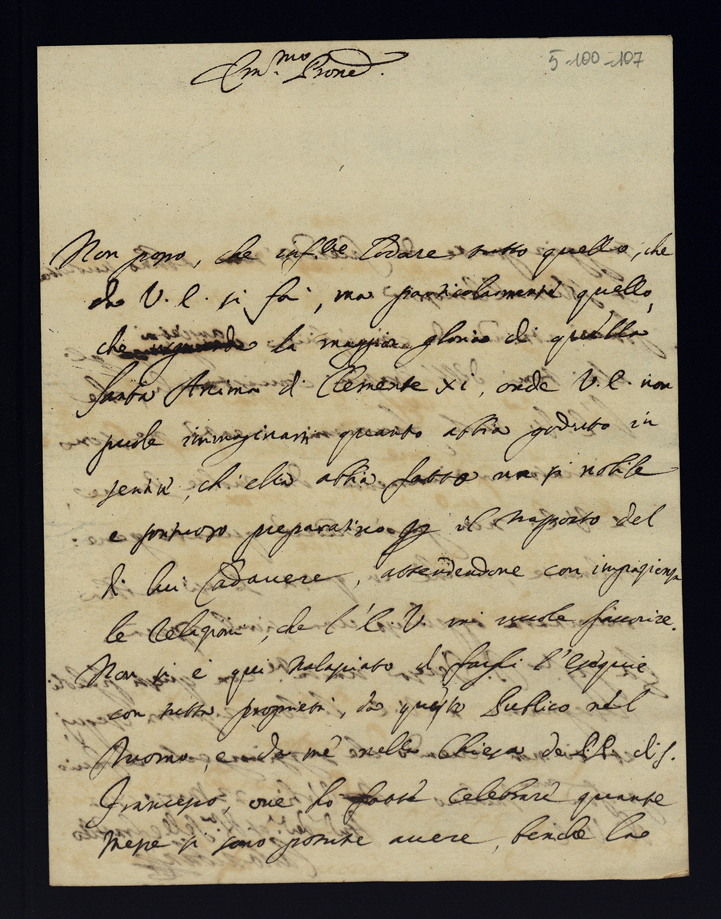 Em.mo Prone
5-100-107
Non posso, che inf.te lodare tutto quello, che
da V. E. si fà, ma particolarmente quello,
che riguarda la maggior gloria di quella
Santa Anima di Clemente XI, onde V. E. non
puole immaginarsi quanto abbia goduto in
sentir, ch'ella abbia fatto un si nobile
e sontuoso preparativo per il trasporto del
di lui Cadavere, attendendone con impazienza
le relazioni, che l'E. V. mi vuole favorire.
Non si è qui tralasciato di fargli l'Esequie
con tutta proprietà, da questo Publico nel
Duomo, e da mè nella Chiesa de PP. di S.
Francesco, ove hò fatte celebrare quante
messe si sono potute avere, benche